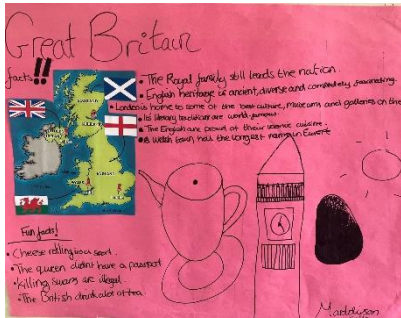 Great Britain
facts!!
• The Royal family still leads the nation
• English heritage is ancient, diverse and completely fascinating.
• London is home to some of the best culture, museums and galleries on the
• Its literary traditions are world-famous
• The English are proud of their science cuisine.
• A Welsh town held the longest name in Europe
Fun facts!
• Cheese rolling is a sport.
• The queen didn't have a passport
• Killing Swans are illegal
• The British drink alot of tea.
Maddyson